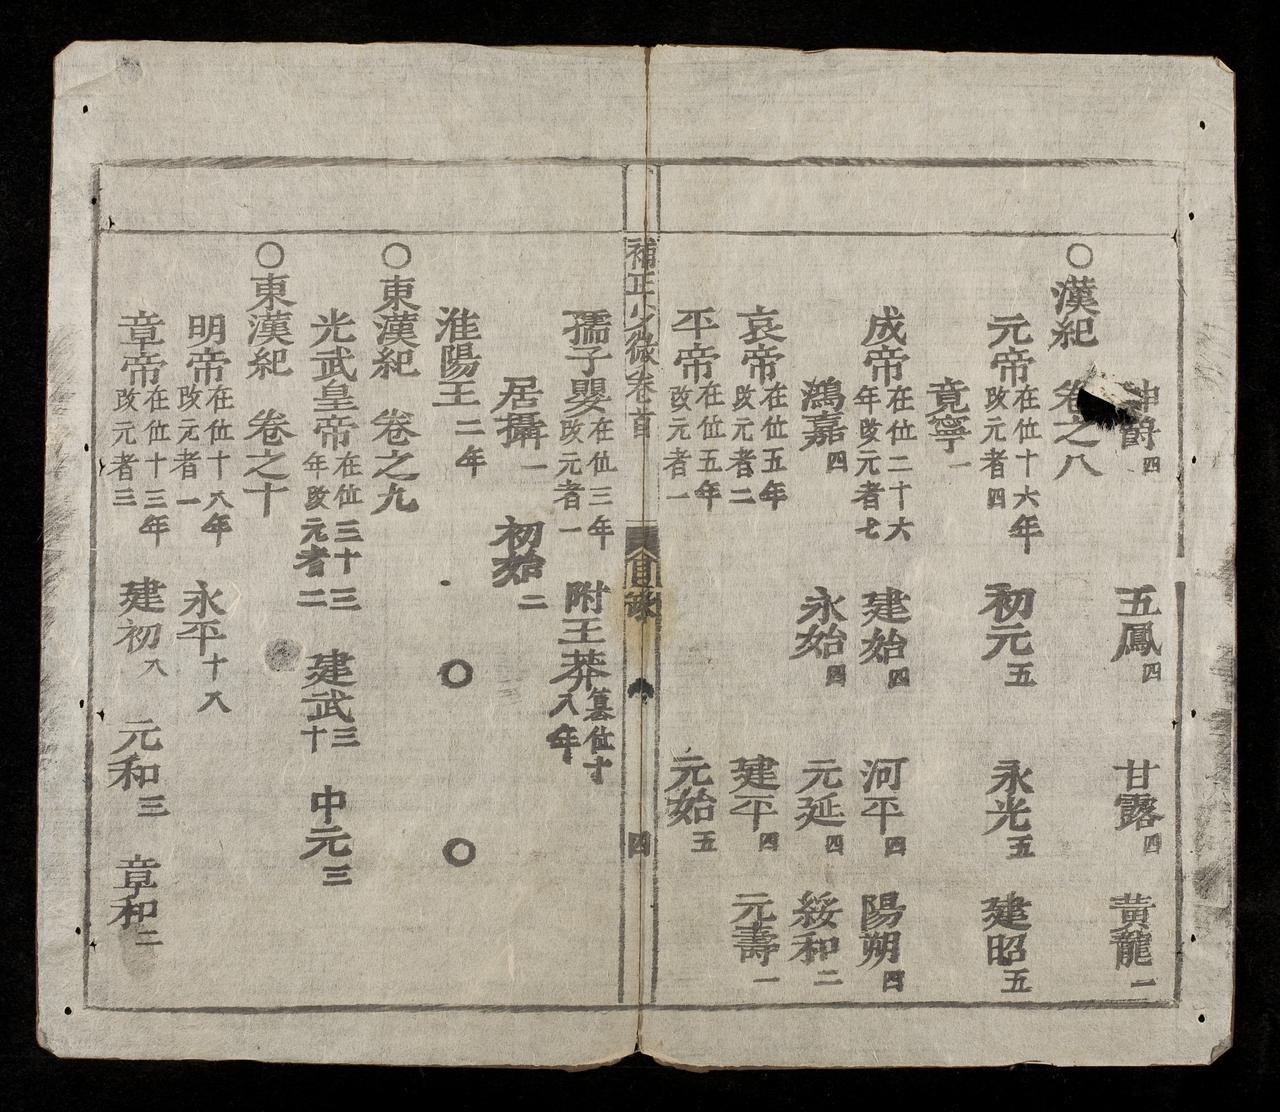 神爵四 五鳳四 甘露四 黃龍一
○漢紀 卷之八
元帝在位十六年改元者四 初元五 永光五 建昭五
竟寧一
成帝在位二十六年改元者七 建始四 河平四 陽朔四
鴻嘉四 永始四 元延四 綏和二
哀帝在位五年改元者二 建平四 元壽一
平帝在位五年改元者一 元始五
補正少微卷首 目錄 四
孺子嬰在位三年改元者一 附王莽篡位十八年
居攝一 初始二
淮陽王二年 ○ ○
○東漢紀 卷之九
光武皇帝在位三十三年改元者二 建武三十 中元三
○東漢紀 卷之十
明帝在位十八年改元者一 永平十八
章帝在位十三年改元者三 建初八 元和三 章和二